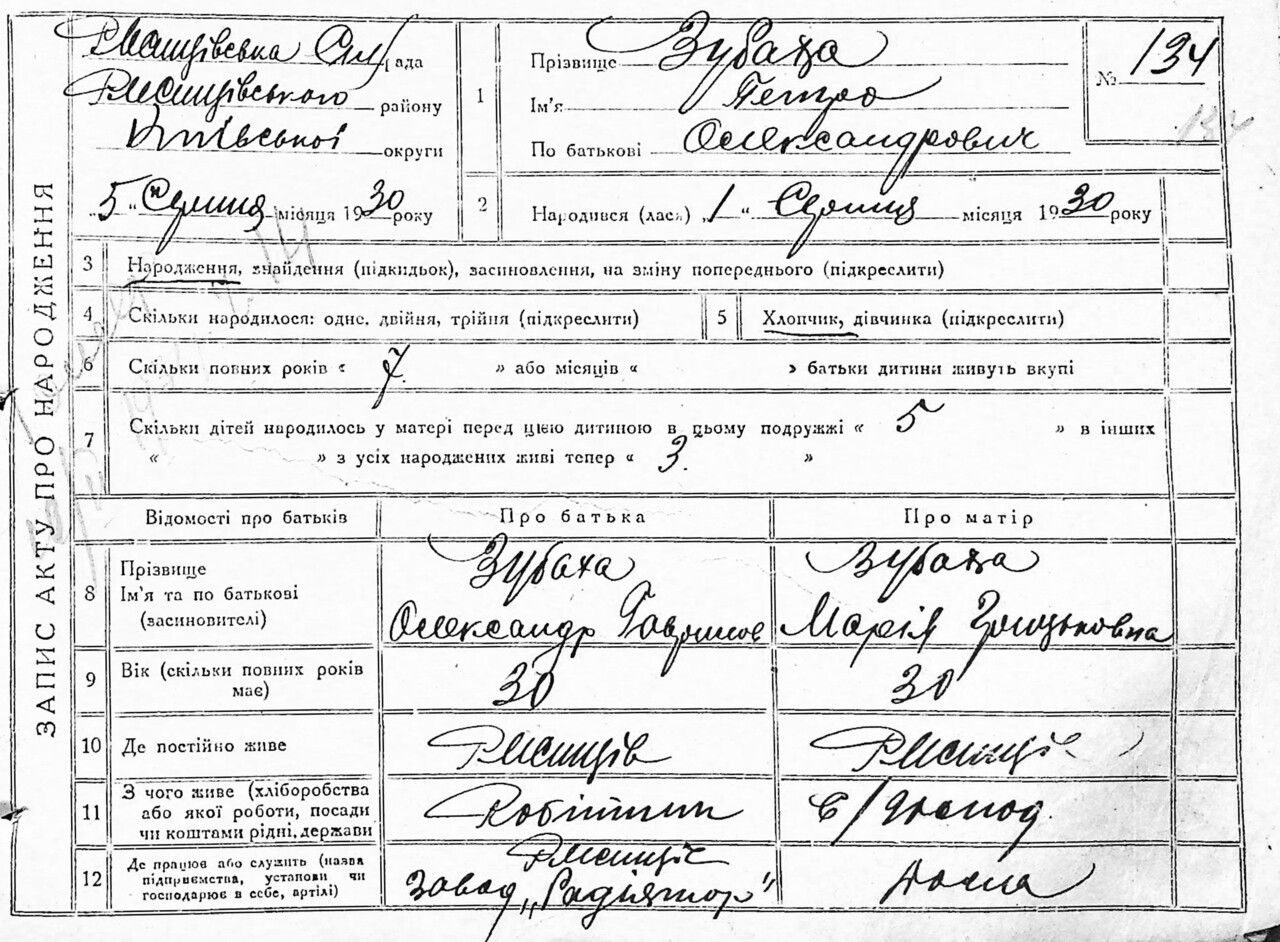 ЗАПИС АКТУ ПРО НАРОДЖЕННЯ
Ржищівська Сіл рада
Ржищівського району
Київської округи
„5“ Серпня місяця 1930 року
1
Прізвище Зубаха
Ім'я Петро
По батькові Олександрович
№ 134
134
2
Народився (лась) „1“ Серпня місяця 1930 року
3 Народження, знайдення (підкидьок), засиновлення, на зміну попереднього (підкреслити)
4 Скільки народилося: одне, двійня, трійня (підкреслити)
5 Хлопчик, дівчинка (підкреслити)
6 Скільки повних років « 7 » або місяців « » батьки дитини живуть вкупі
7 Скільки дітей народилось у матері перед цією дитиною в цьому подружжі « 5 » в інших
« » з усіх народжених живі тепер « 3 »
Відомості про батьків Про батька Про матір
8 Прізвище
Ім'я та по батькові
(засиновителі)
Зубаха
Олександр
Зубаха
Марія
9 Вік (скільки повних років
має)
30
30
10 Де постійно живе Ржищів Ржищів
11 З чого живе (хліборобства
або якої роботи, посади
чи коштами рідні, держави
Робітник
12 Де працює або служить (назва
підприємства, установи чи
господарює в себе, артілі)
Ржищів
завод „Радіятор“
дома